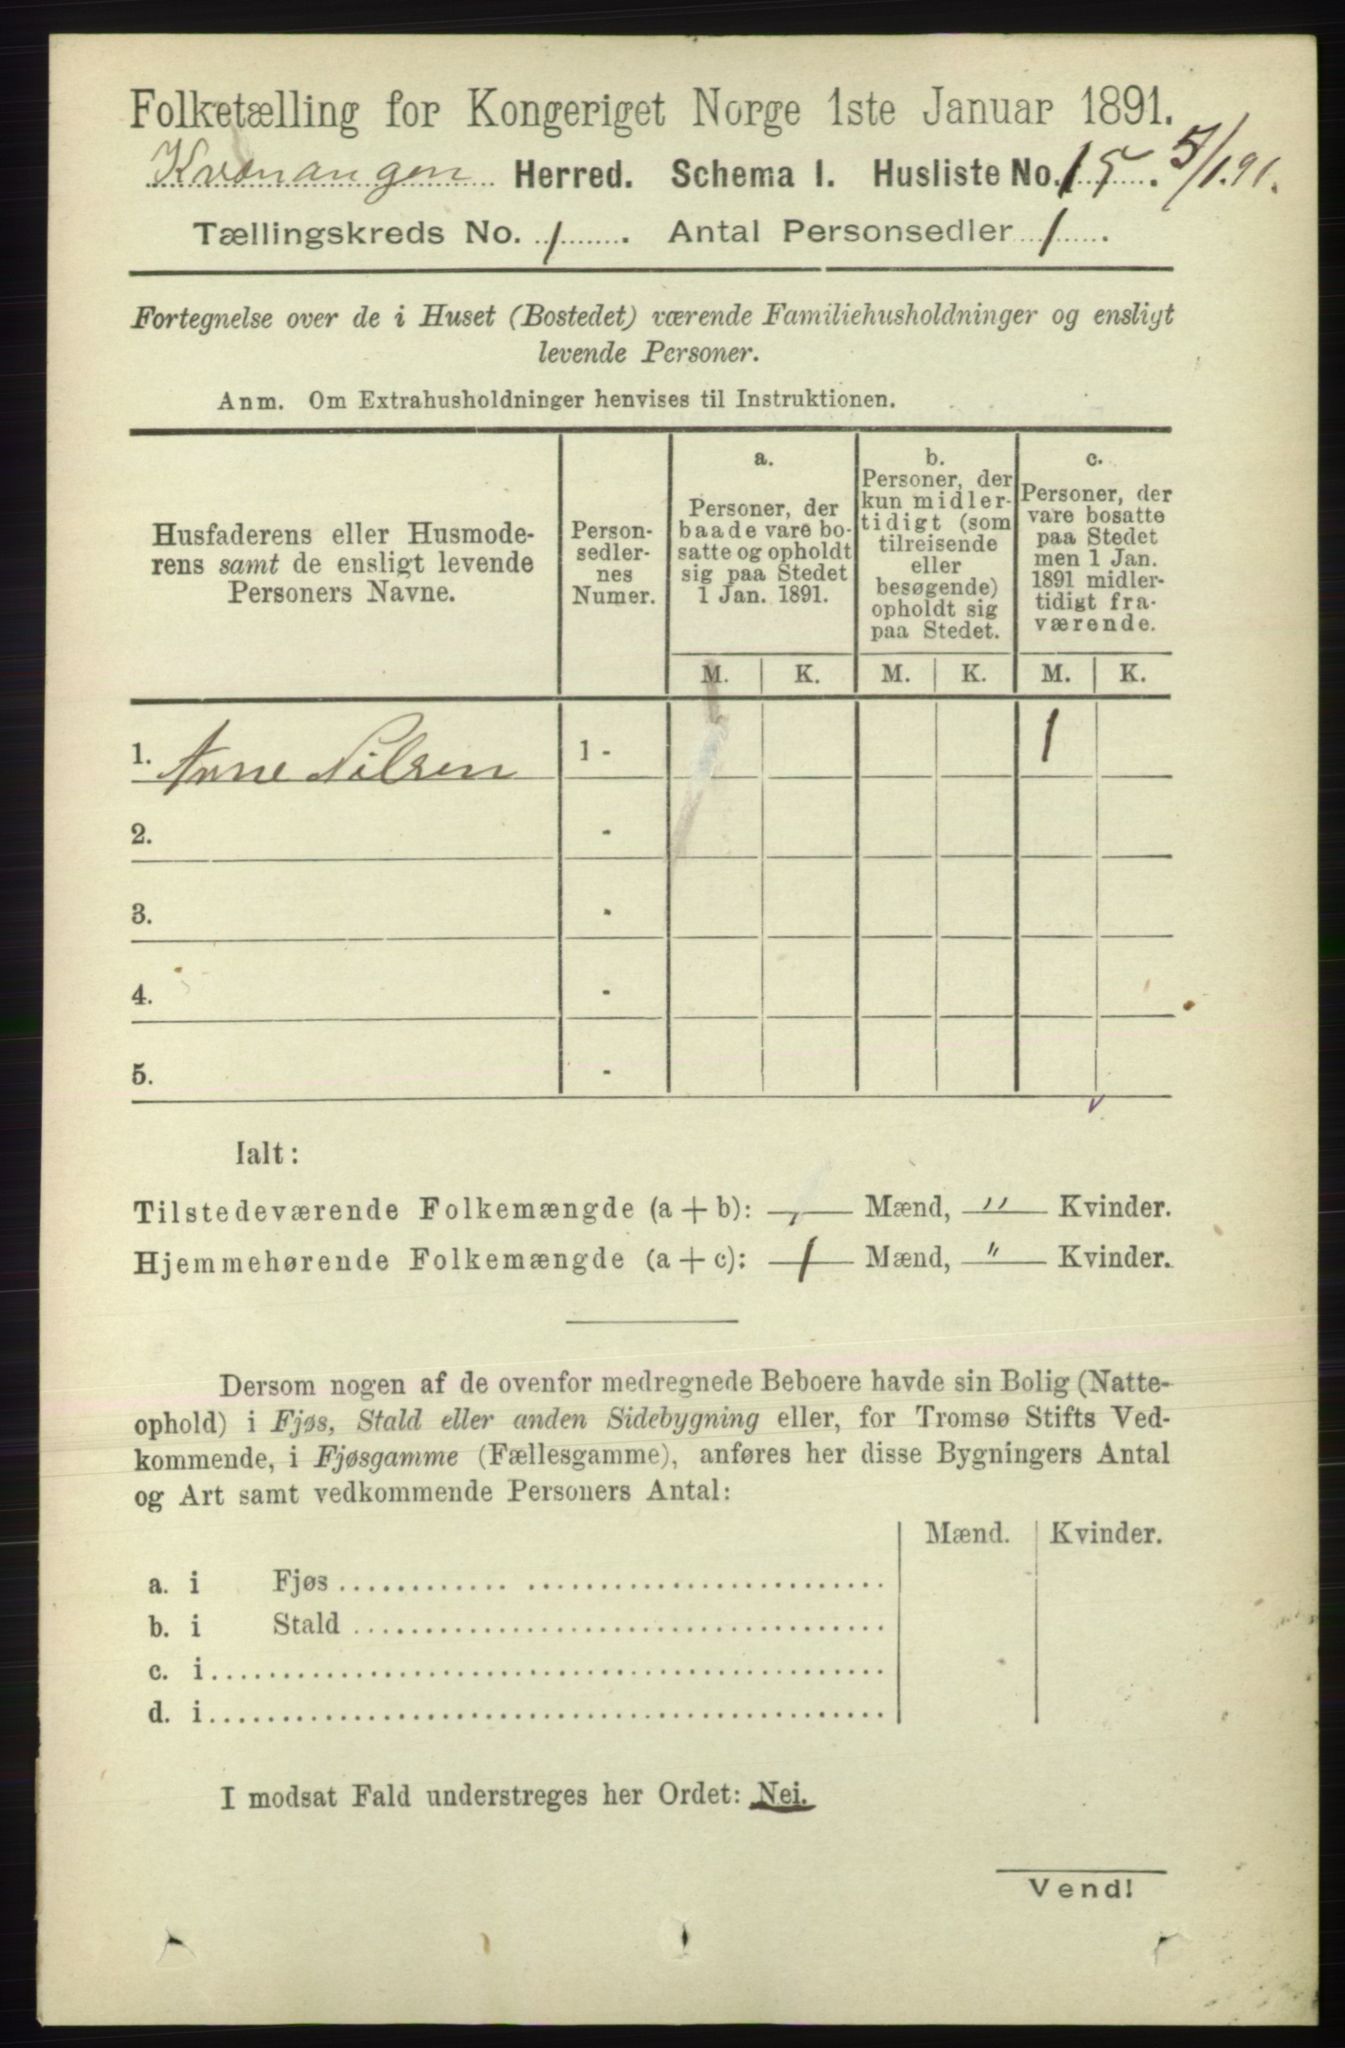 Folketælling for Kongeriget Norge 1ste Januar 1891.
Kvænangen Herred. Schema I. Husliste No. 15. 5/1.91.
Tællingskreds No. 1. Antal Personsedler 1.
Fortegnelse over de i Huset (Bostedet) værende Familiehusholdninger og ensligt
levende Personer.
Anm. Om Extrahusholdninger henvises til Instruktionen.
Husfaderens eller Husmode-
rens samt de ensligt levende
Personers Navne.
Person-
sedler-
nes
Numer.
a.
Personer, der
baade vare bo-
satte og opholdt
sig paa Stedet
1 Jan. 1891.
b.
Personer, der
kun midler-
tidigt (som
tilreisende
eller
besøgende)
opholdt sig
paa Stedet.
c.
Personer, der
vare bosatte
paa Stedet
men 1 Jan.
1891 midler-
tidigt fra-
værende.
M. K. M. K. M. K.
1. Arne Nilsen 1 - 1
2. -
3. -
4. -
5. -
Ialt:
Tilstedeværende Folkemængde (a + b): Mænd, " Kvinder.
Hjemmehørende Folkemængde (a + c): 1 Mænd, " Kvinder.
Dersom nogen af de ovenfor medregnede Beboere havde sin Bolig (Natte-
ophold) i Fjøs, Stald eller anden Sidebygning eller, for Tromsø Stifts Ved-
kommende, i Fjøsgamme (Fællesgamme), anføres her disse Bygningers Antal
og Art samt vedkommende Personers Antal:
Mænd. Kvinder.
a. i Fjøs
b. i Stald
c. i
d. i
I modsat Fald understreges her Ordet: Nei.
Vend!